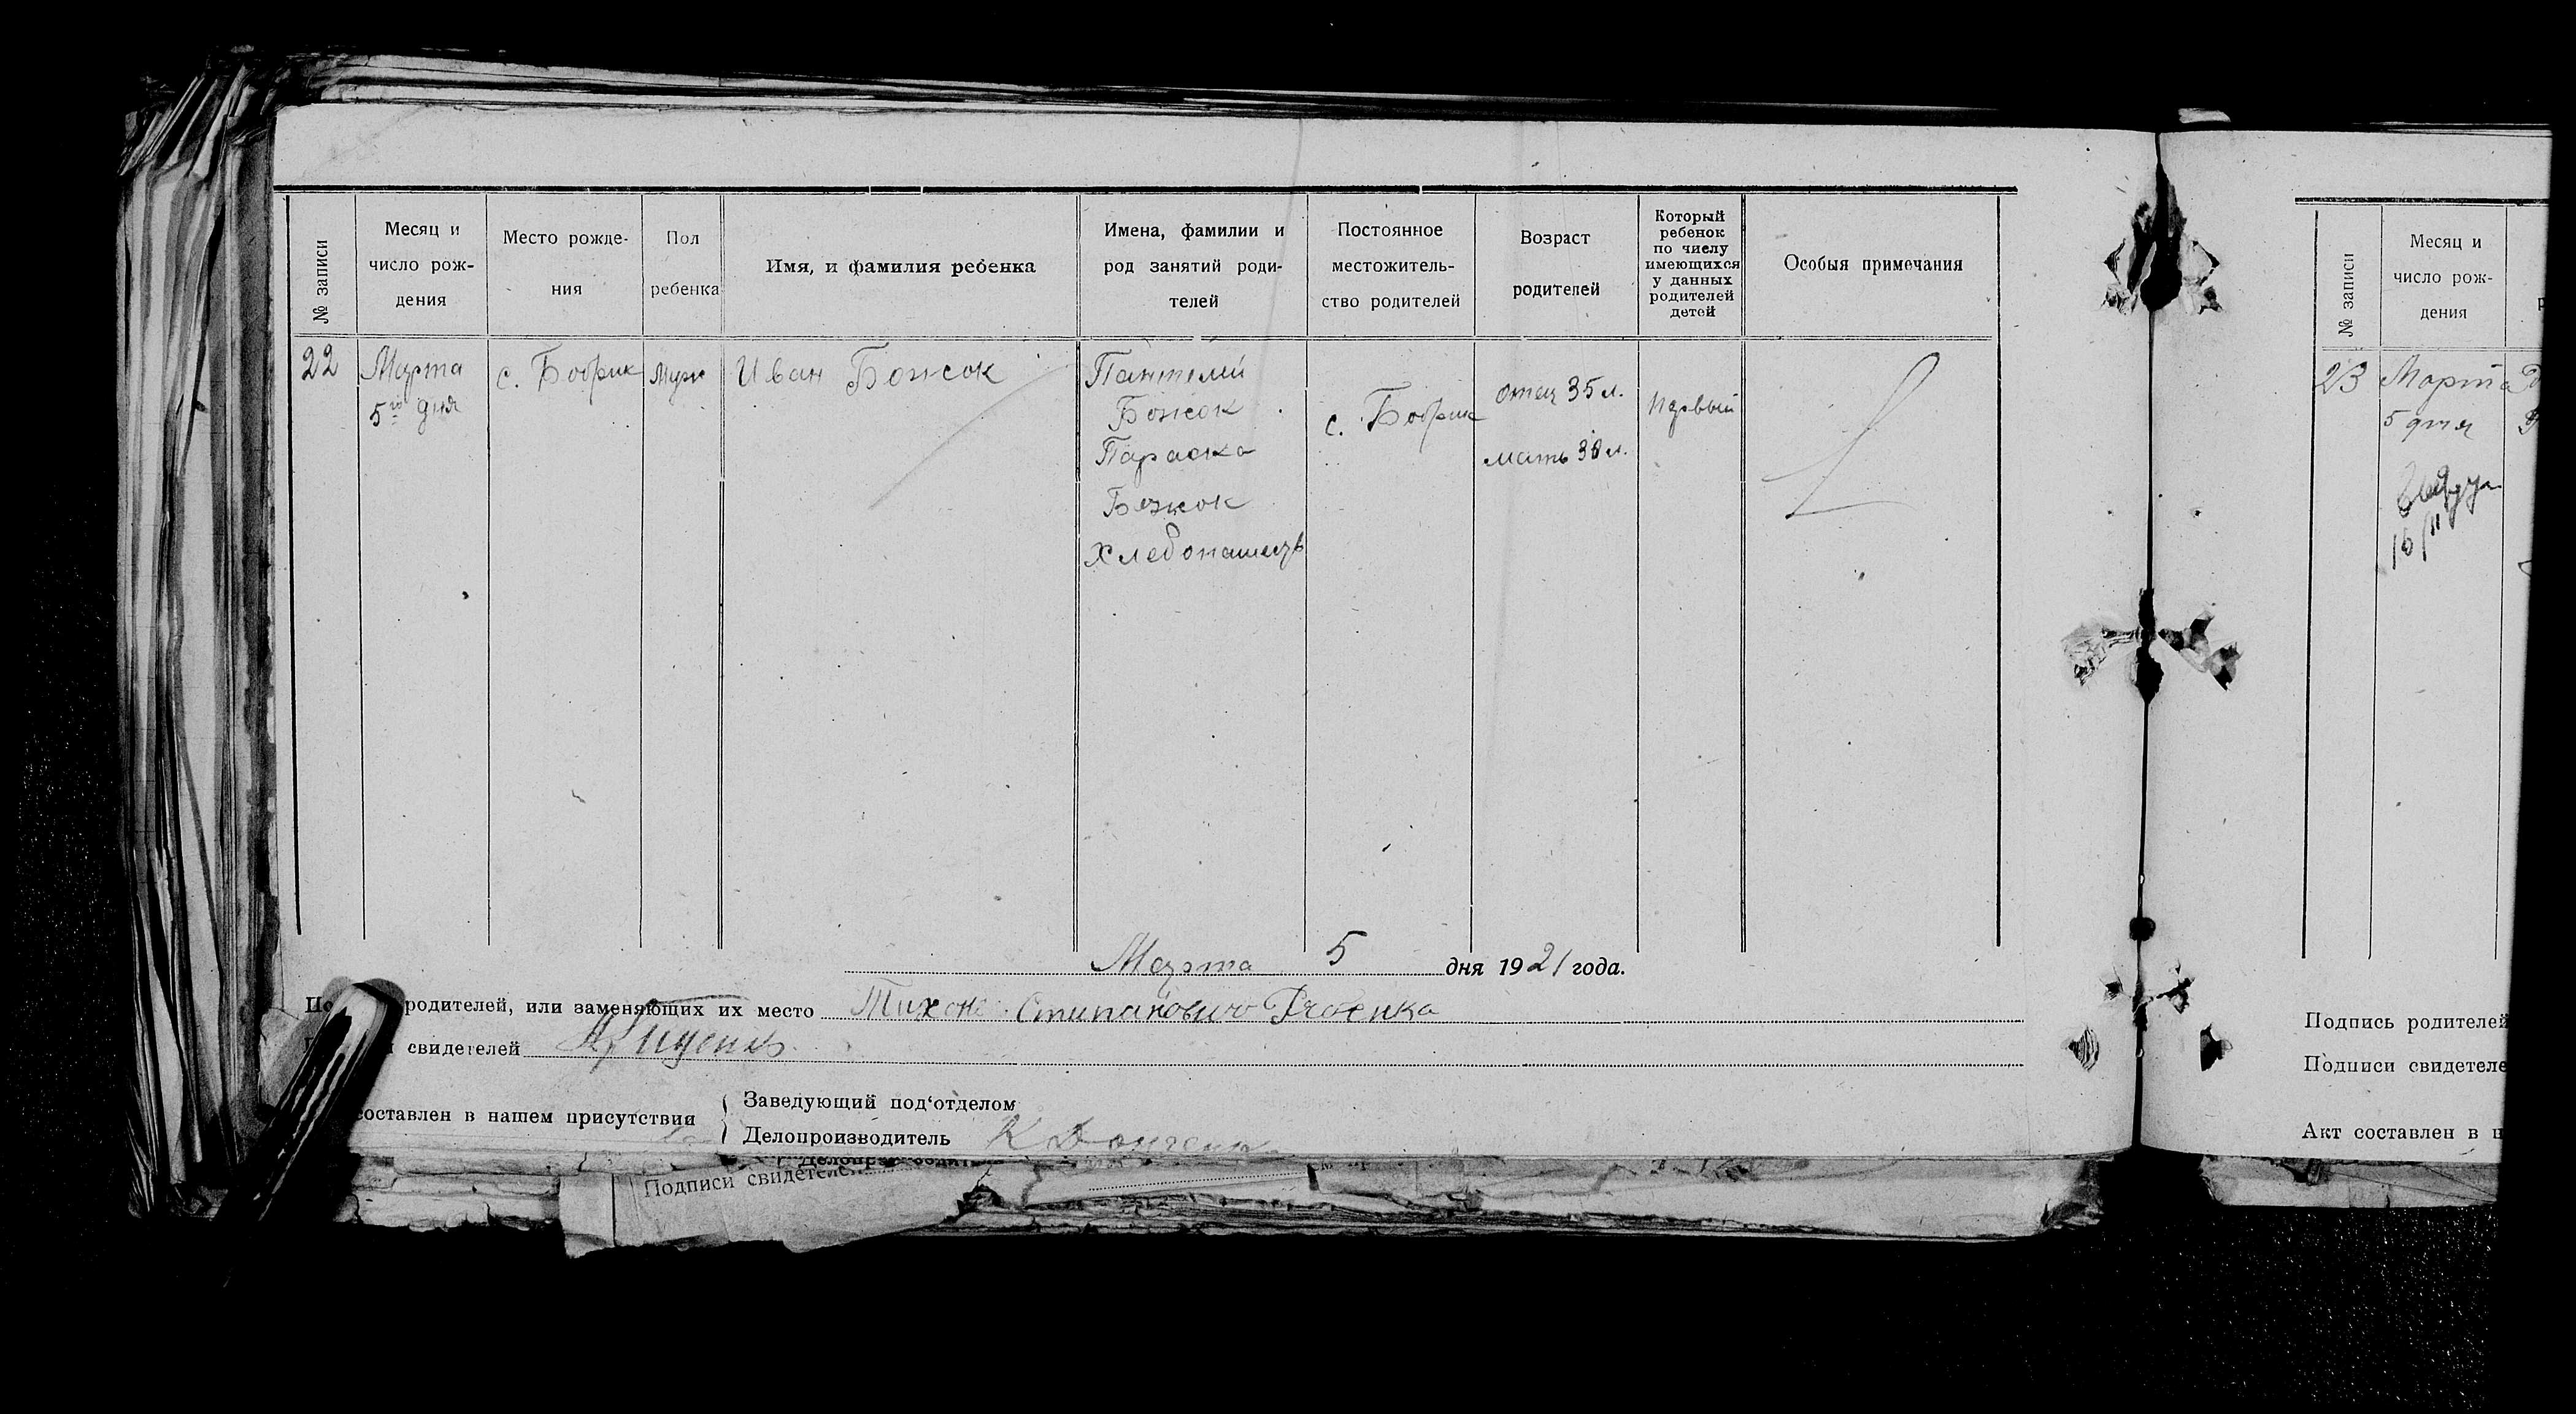 № записи
Месяц и
число рож-
дения
Место рожде-
ния
Пол
ребенка
Имя, и фамилия ребенка
Имена, фамилии и
род занятий роди-
телей
Постоянное
местожитель-
ство родителей
Возраст
родителей
Который
ребенок
по числу
имеющихся
у данных
родителей
детей
Особыя примечания
22
Марта
5го дня
с. Бобрик
Муж
Иван Божок
Пантелей
Божок
Параска
Божок
Хлебопашецъ
с. Бобрик
отец 35 л.
мать 30 л.
Первый
Марта 5 дня 1921 года.
родителей, или заменяющих их место Тихон
свидетелей
составлен в нашем присутствии
Заведующий под‘отделом
Делопроизводитель
Подписи свидетелей
№ записи
Месяц и
число рож-
дения
23
Марта
5 дня
Подпись родителей
Подписи свидетеле
Акт составлен в н